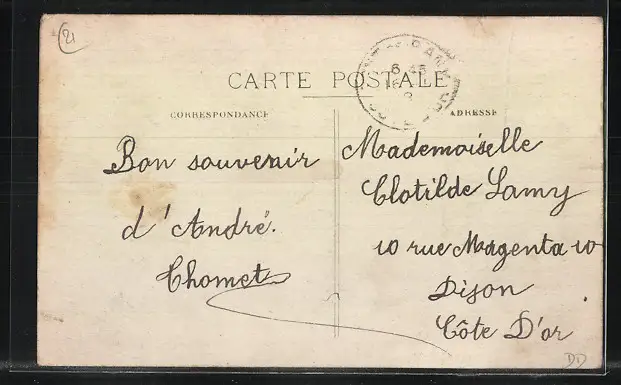 21
CARTE POSTALE
CORRESPONDANCE
ADRESSE
Bon souvenir
d'André.
Thomet
Mademoiselle
Clotilde Lamy
10 rue Magenta 10
Dijon
Côte D'or
DD